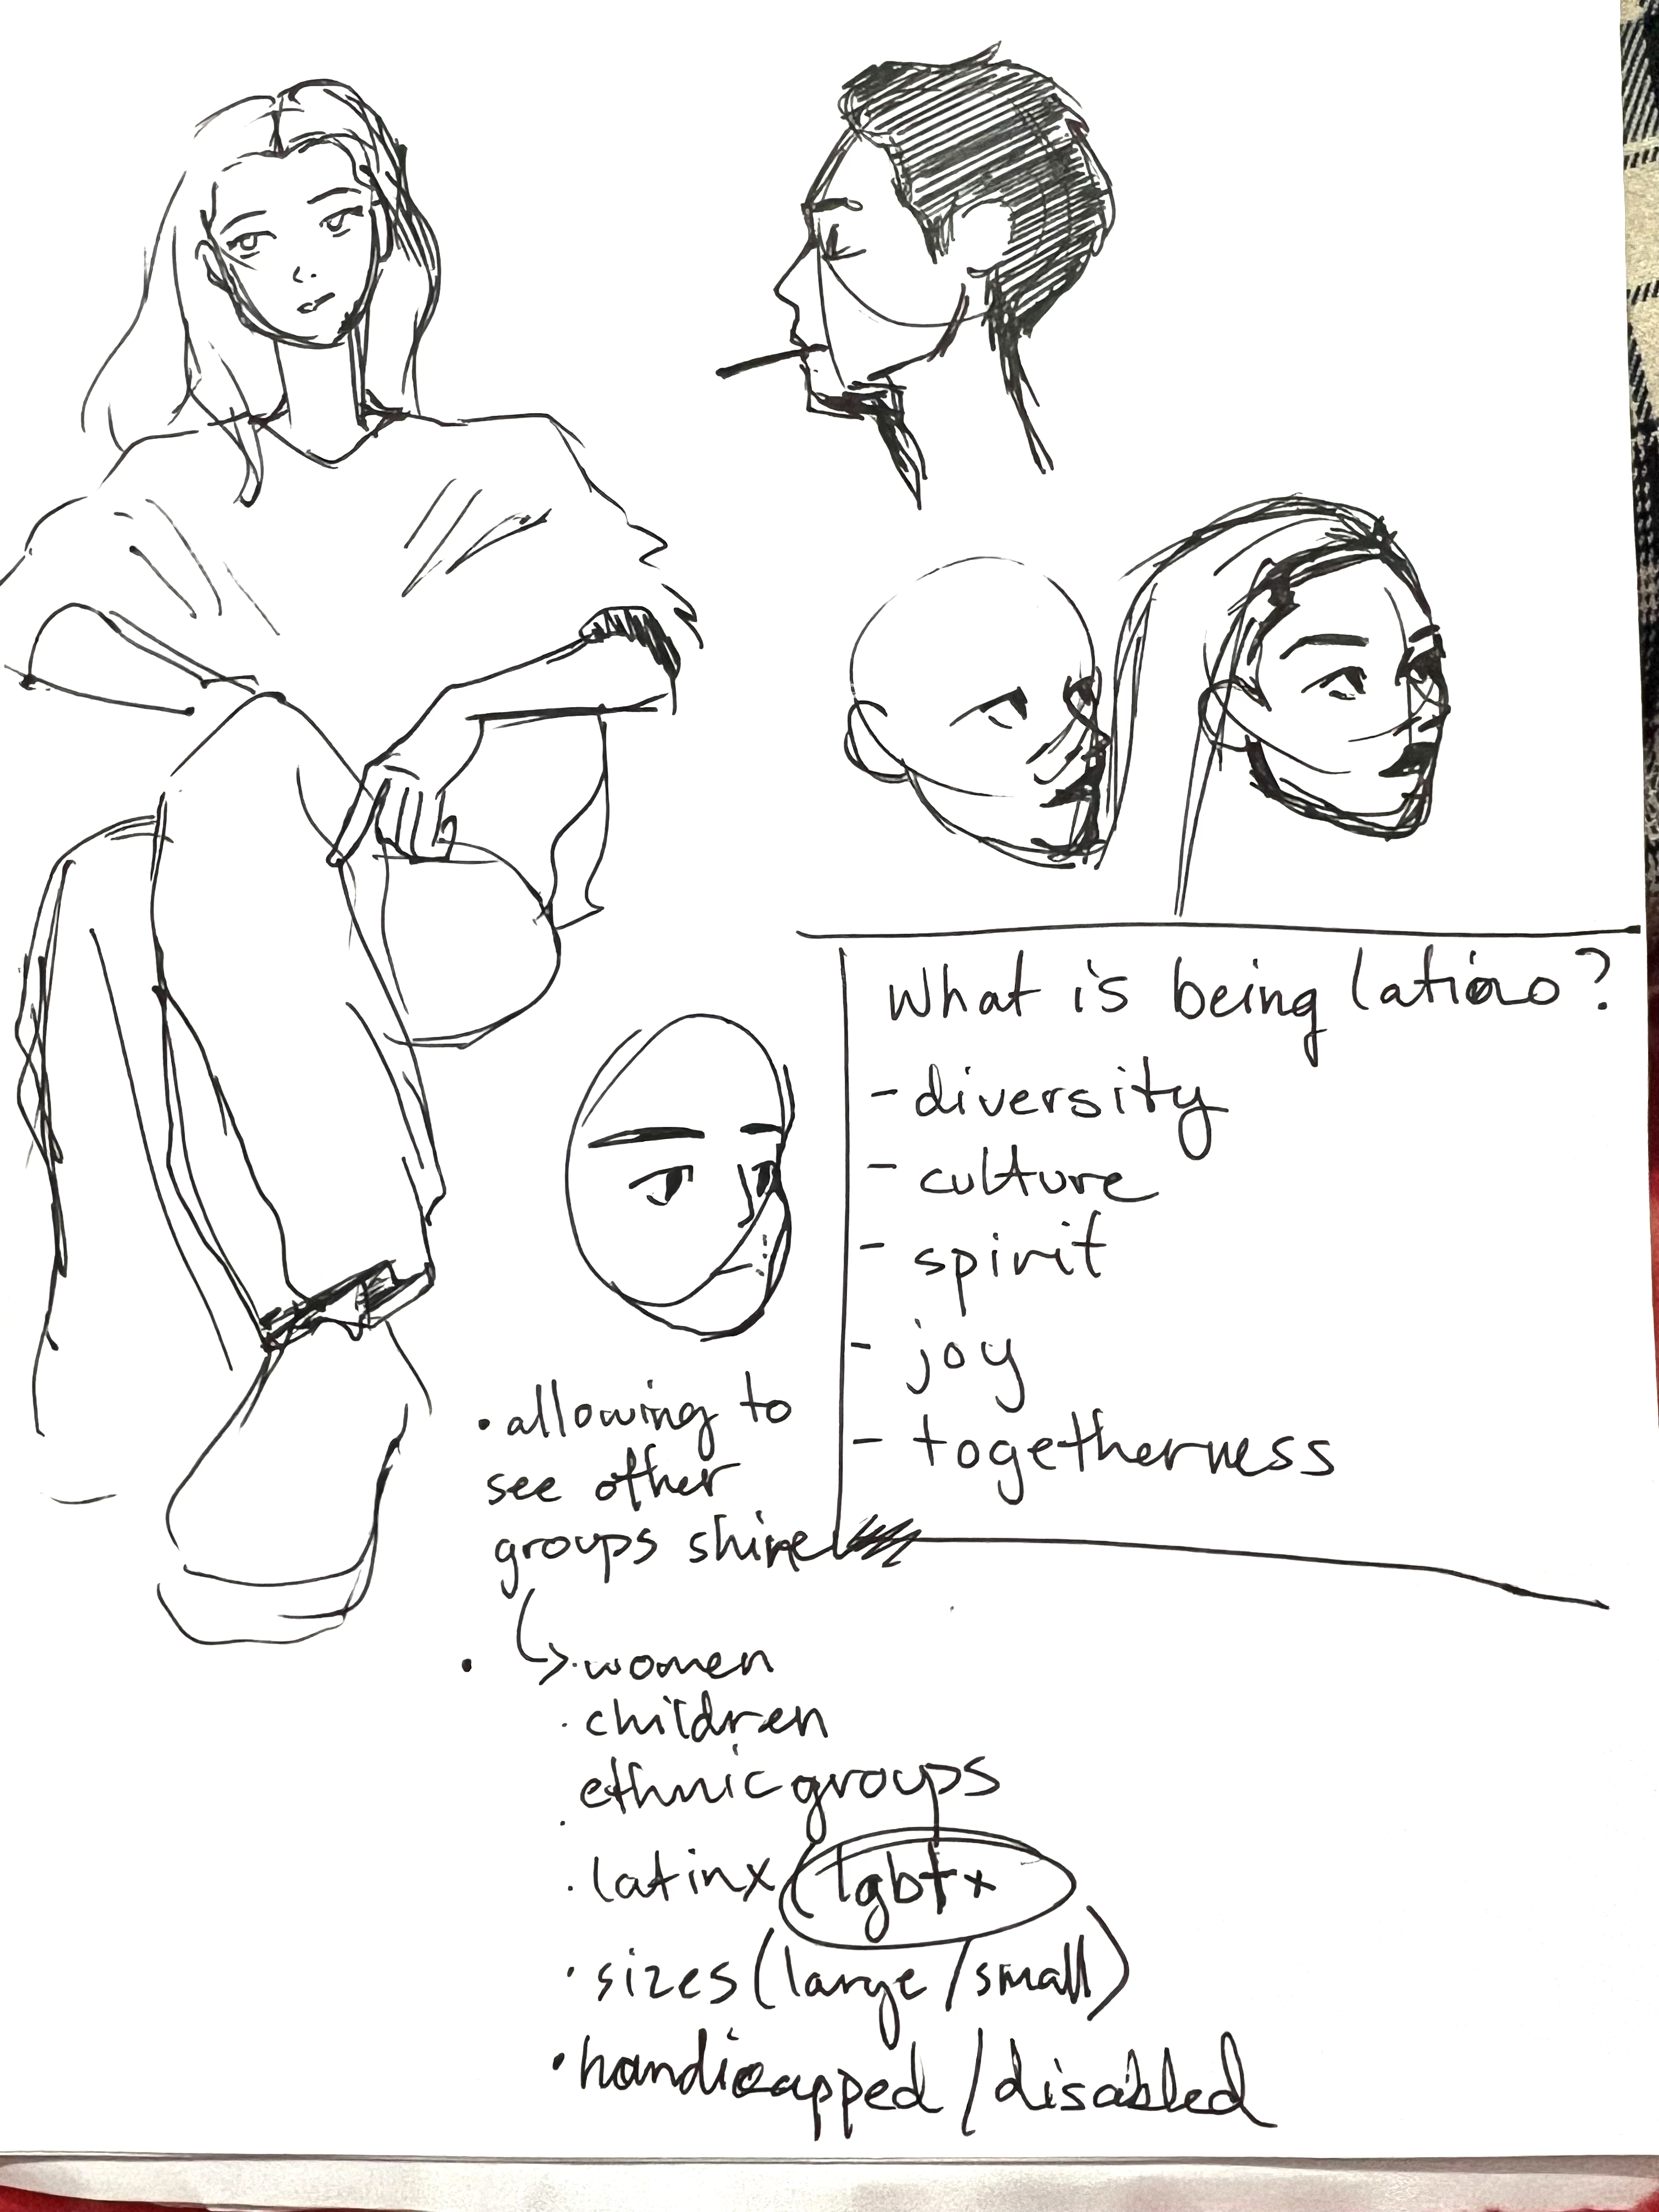 What is being latino?
- diversity
- culture
- spirit
- joy
- togetherness
• allowing to
see other
groups shine
• ↳ • women
• children
• ethnic groups
• latinx lgbt+
• sizes (large/small)
• handicapped/disabled